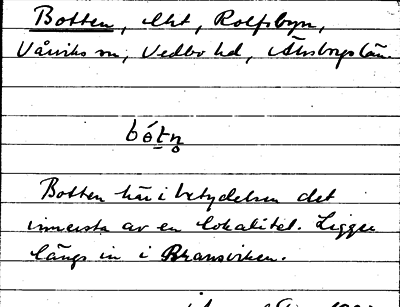 Botten, lht, Rolfsbyn,
Vårviks sn, Vedbo hd, Älvsborgs län.
bót̲n̥
Botten här i betydelsen det
innersta av en lokalitet. Ligger
längs in i Bransviken.